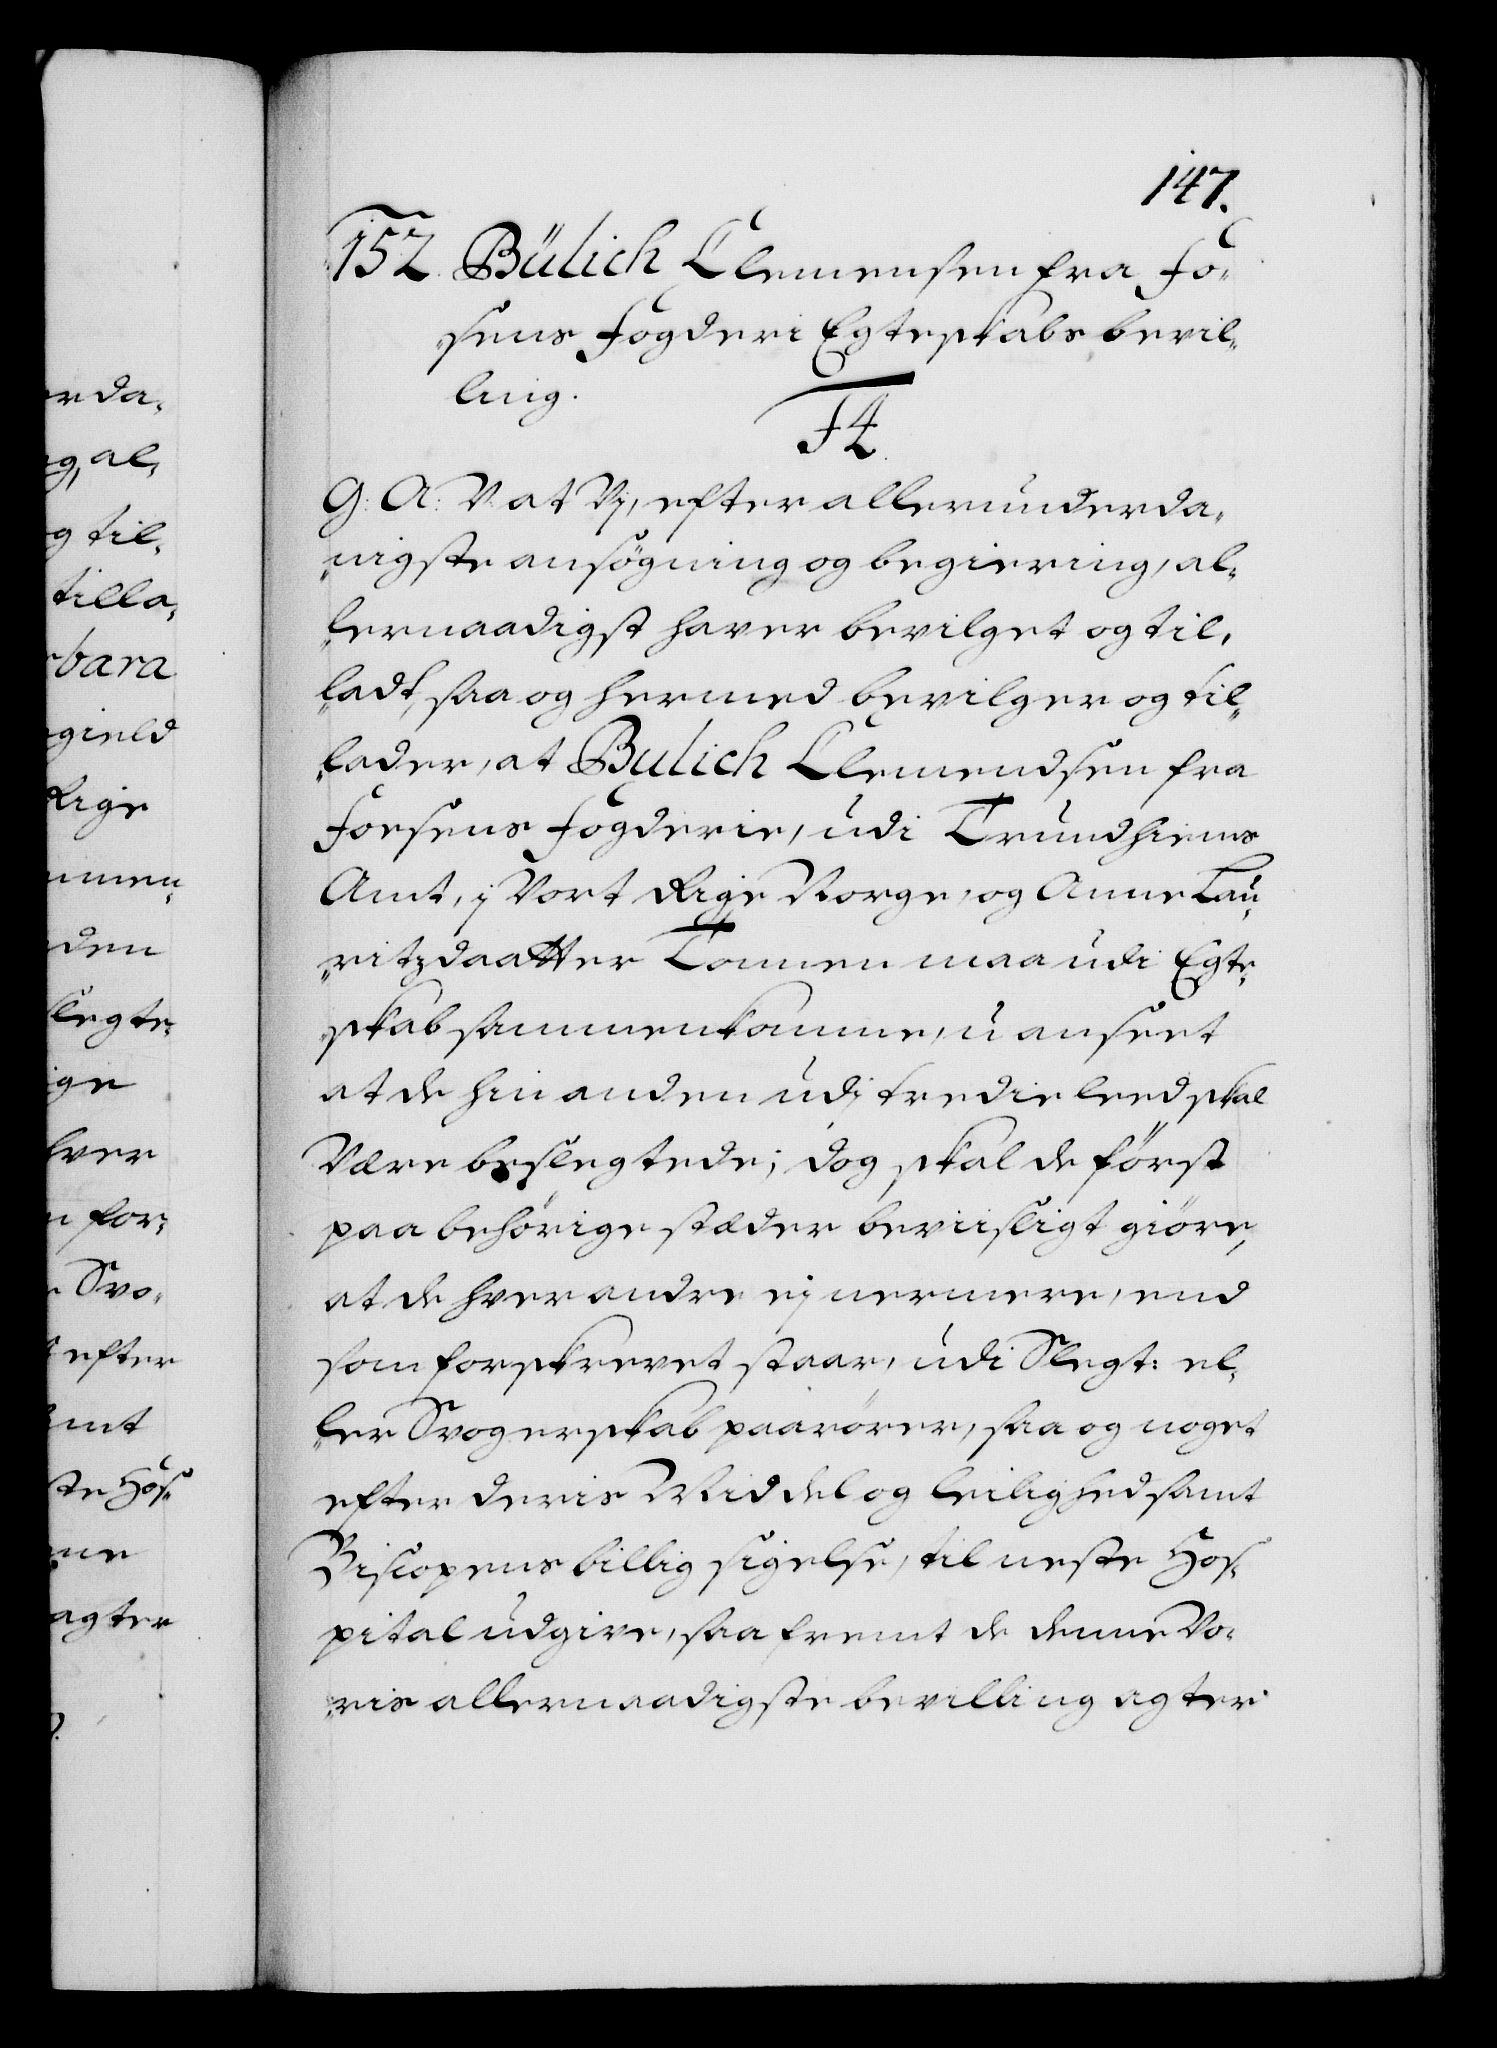 147.
152. Bülich Clemensen fra Fo-
sens Fogderi Egteskabs bevil-
ling.
F4.
G: A: V: at Vj, efter allerunderda-
nigste ansögning og begiering, al-
lernaadigst haver bevilget og til-
ladt, saa og hermed bevilger og til-
lader, at Bulich Clemendsen fra
Forsens Fogderie, udi Trundhiems
Amt, j Vort Rige Norge, og Anne Lau-
ritzdaatter Tonnen maa udi Egte-
skab sammenkomme, u anseet
at de hin anden udj tredie leed skal
Være beslegtede; dog skal de först
paa behörige stæder beviisligt giöre,
at de hver andre ej nermere, end
som forskrevet staar, udi Slegt: el-
ler Svogerskab paarörer, saa og noget
efter deris Middel og leilighed samt
Biscopens billig sigelse, til neste Hos-
pital udgive, saa fremt de denne Vo-
ris allernaadigste bevilling agter
erda-
g, al-
g til-
tilla-
rbara
gield
Rige
mmen-
den
slegte-
ige
hver
n for-
e Svo-
efter
amt
ste Hos-
ne
agter